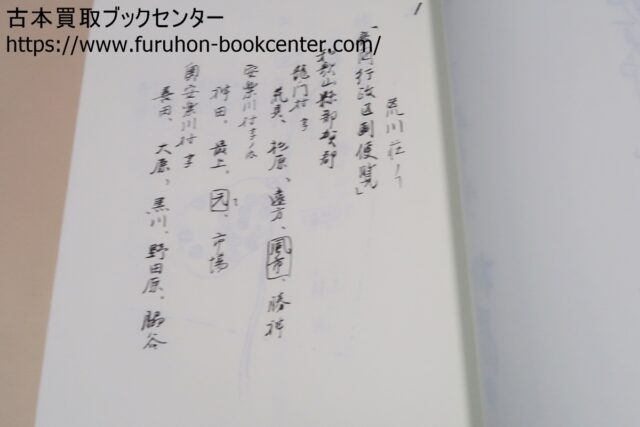 古本買取ブックセンター
https://www.furuhon-bookcenter.com/
1
荒川荘
行政区画便覧」
和歌山縣那賀郡
龍門村 字
荒見、杉原、遠方、風市、勝神
安楽川村 字
神田、最上、元、市場
奥安楽川村 字
善田、大原、黒川、野田原、脇谷